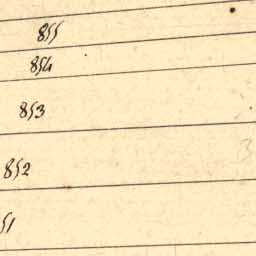 855
854
853
852
51